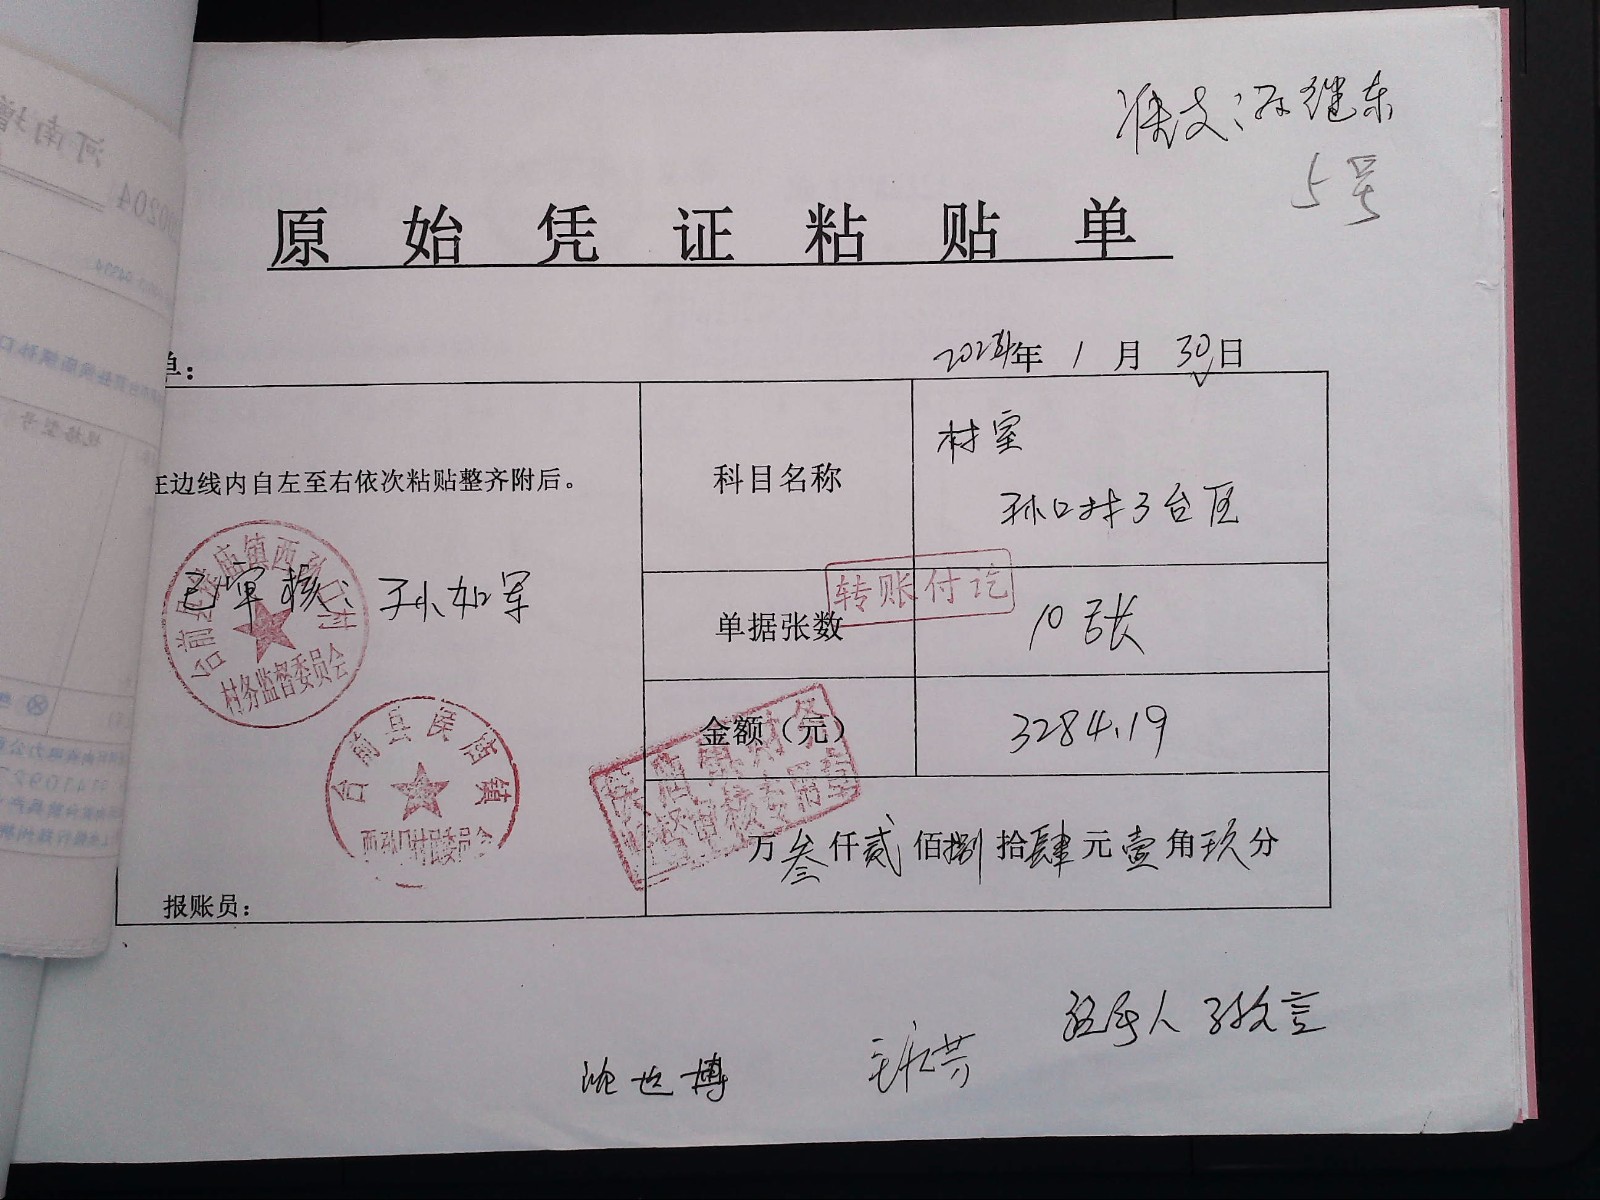 准支:孙继东
5号
原始凭证粘贴单
单:
年 1 月 30 日
在边线内自左至右依次粘贴整齐附后。
科目名称
村室
孙口村3台区
已审核: 孙如军
台前县侯庙镇西孙口村
村务监督委员会
单据张数
10张
转账付讫
金额(元)
3284.19
台前县侯庙镇
西孙口村村民委员会
万叁仟贰佰捌拾肆元壹角玖分
报账员:
经手人 孙文言
沈世博
河南增
规格型号